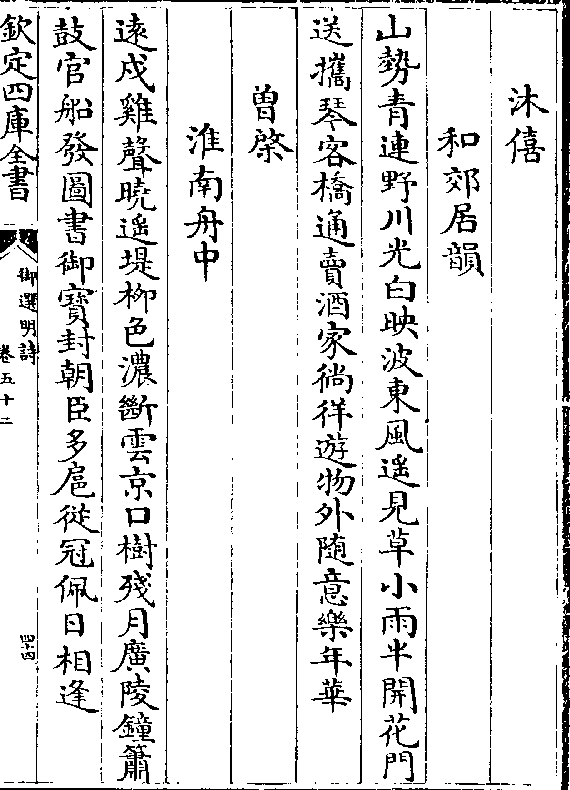 沐僖
和郊居韻
山勢青連野川光白映波東風遥見草小雨半開花門
送攜琴客橋通賣酒家徜徉遊物外随意樂年華
曽棨
淮南舟中
遠戍雞聲曉遥堤栁色濃斷雲京口樹殘月廣陵鐘簫
鼓官船發圖書御寳封朝臣多扈從冠佩日相逢
欽定四庫全書
御選明詩
卷五十二
四十四